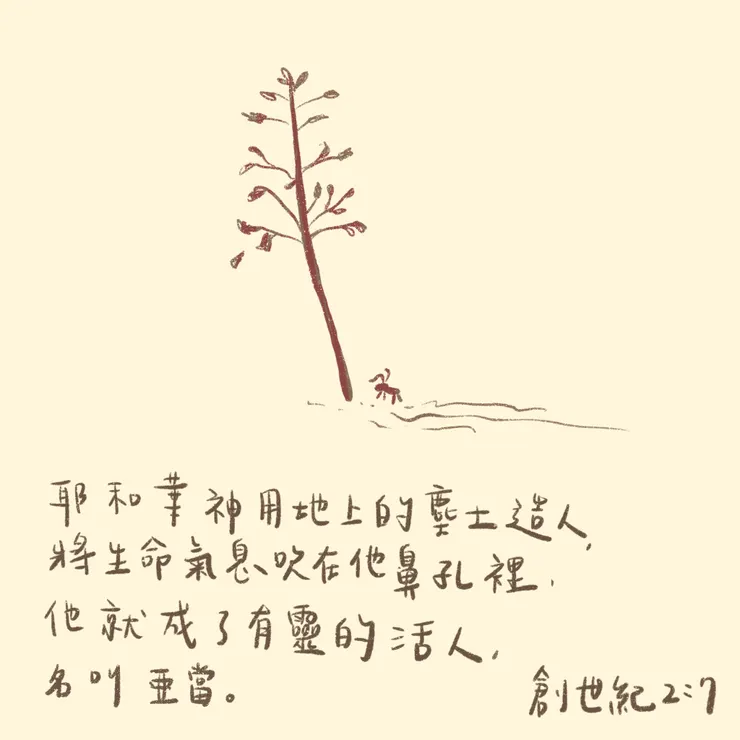 耶和華神用地上的塵土造人,
將生命氣息吹在他鼻孔裡,
他就成了有靈的活人,
名叫亞當。
創世紀2:7